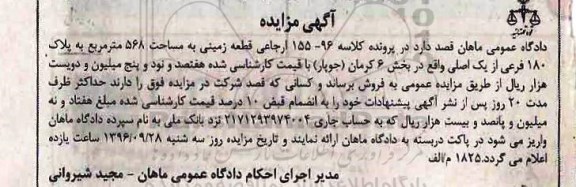 آگهی مزایده
دادگاه عمومی ماهان قصد دارد در پرونده کلاسه ۹۶- ۱۵۵ ارجاعی قطعه زمینی به مساحت ۵۶۸ مترمربع به پلاک
۱۸۰ فرعی از یک اصلی واقع در بخش ۶ کرمان (جوپار) با قیمت کارشناسی شده هفتصد و نود و پنج میلیون و دویست
هزار ریال از طریق مزایده عمومی به فروش برساند و کسانی که قصد شرکت در مزایده فوق را دارند حداکثر ظرف
مدت ۲۰ روز پس از نشر آگهی پیشنهادات خود را به انضمام فیض ۱۰ درصد قیمت کارشناسی شده مبلغ هفتاد و نه
میلیون و پانصد و بیست هزار ریال که به حساب جاری ۲۱۷۱۲۹۳۹۷۴۰۰۴ نزد بانک ملی به نام سپرده دادگاه ماهان
واریز می شود در پاکت دربسته به دادگاه ماهان ارائه نمایند و تاریخ مزایده روز سه شنبه ۱۳۹۶/۰۹/۲۸ ساعت یازده
اعلام می گردد.۱۸۲۵ م/الف
مدیر اجرای احکام دادگاه عمومی ماهان - مجید شیروانی